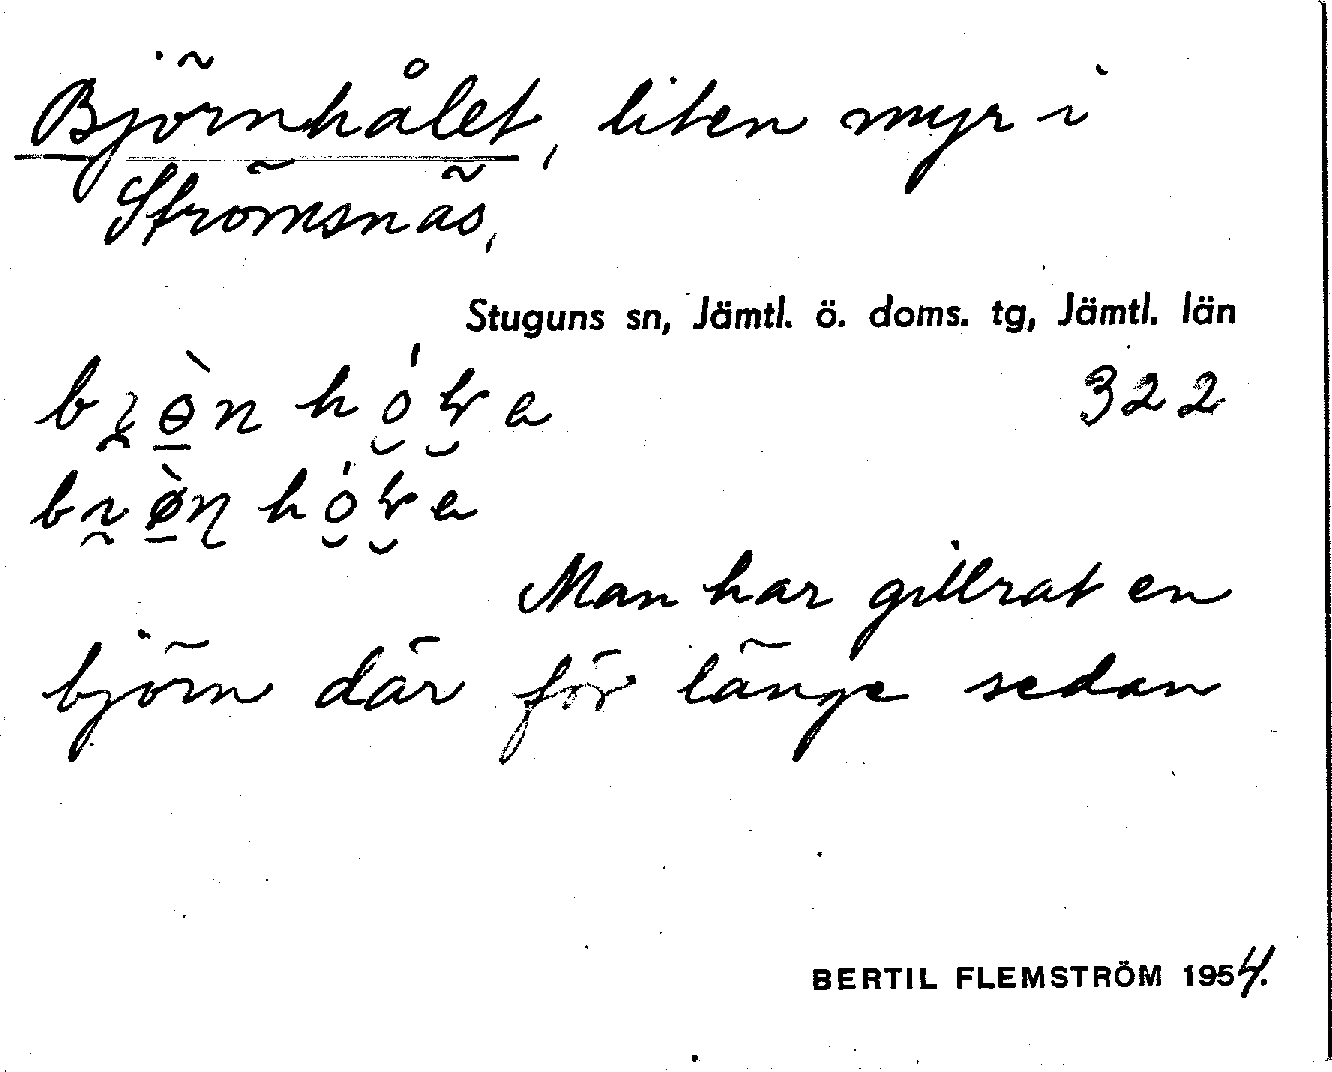 Björnhålet, liten myr i
Strömsnäs,
Stuguns sn, Jämtl. ö. doms. tg, Jämtl. län
322
Man har gillrat en
björn där för länge sedan
BERTIL FLEMSTRÖM 1954.